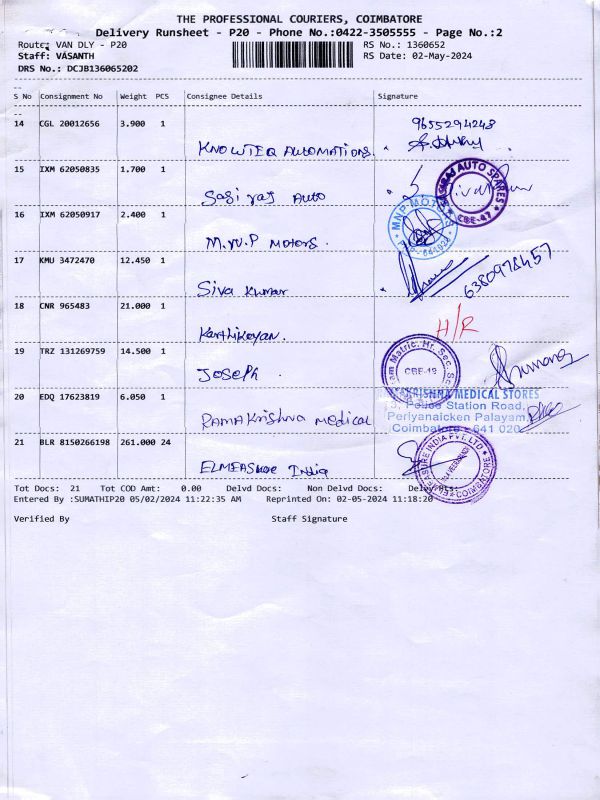 THE PROFESSIONAL COURIERS, COIMBATORE
Delivery Runsheet - P20 - Phone No.:0422-3505555 - Page No.:2
Route: VAN DLY - P20 RS No.: 1360652
Staff: VASANTH RS Date: 02-May-2024
DRS No.: DCJB136065202
S No Consignment No Weight PCS Consignee Details Signature
14 CGL 20012656 3.900 1 9655294248
KNOWTEQ AUTOMATIONS.
15 IXM 62050835 1.700 1 AUTO SPARES CBE-47
Sasi raj Auto
16 IXM 62050917 2.400 1 MNP MOTORS 641028
M.N.P Motors.
17 KMU 3472470 12.450 1 6380978457
Siva kumar
18 CNR 965483 21.000 1 H/R
Karthikeyan.
19 TRZ 131269759 14.500 1 Matric. Hr. Sec. CBE-19
Joseph
20 EDQ 17623819 6.050 1 KRISHNA MEDICAL STORES
Police Station Road,
RAMA Krishna medical Periyanaicken Palayam,
Coimbatore - 641 020
21 BLR 8150266198 261.000 24 INDIA PVT. LTD COIMBATORE
ELMEASURE India
Tot Docs: 21 Tot COD Amt: 0.00 Delvd Docs: Non Delvd Docs: Delay Hrs:
Entered By :SUMATHIP20 05/02/2024 11:22:35 AM Reprinted On: 02-05-2024 11:18:20
Verified By Staff Signature